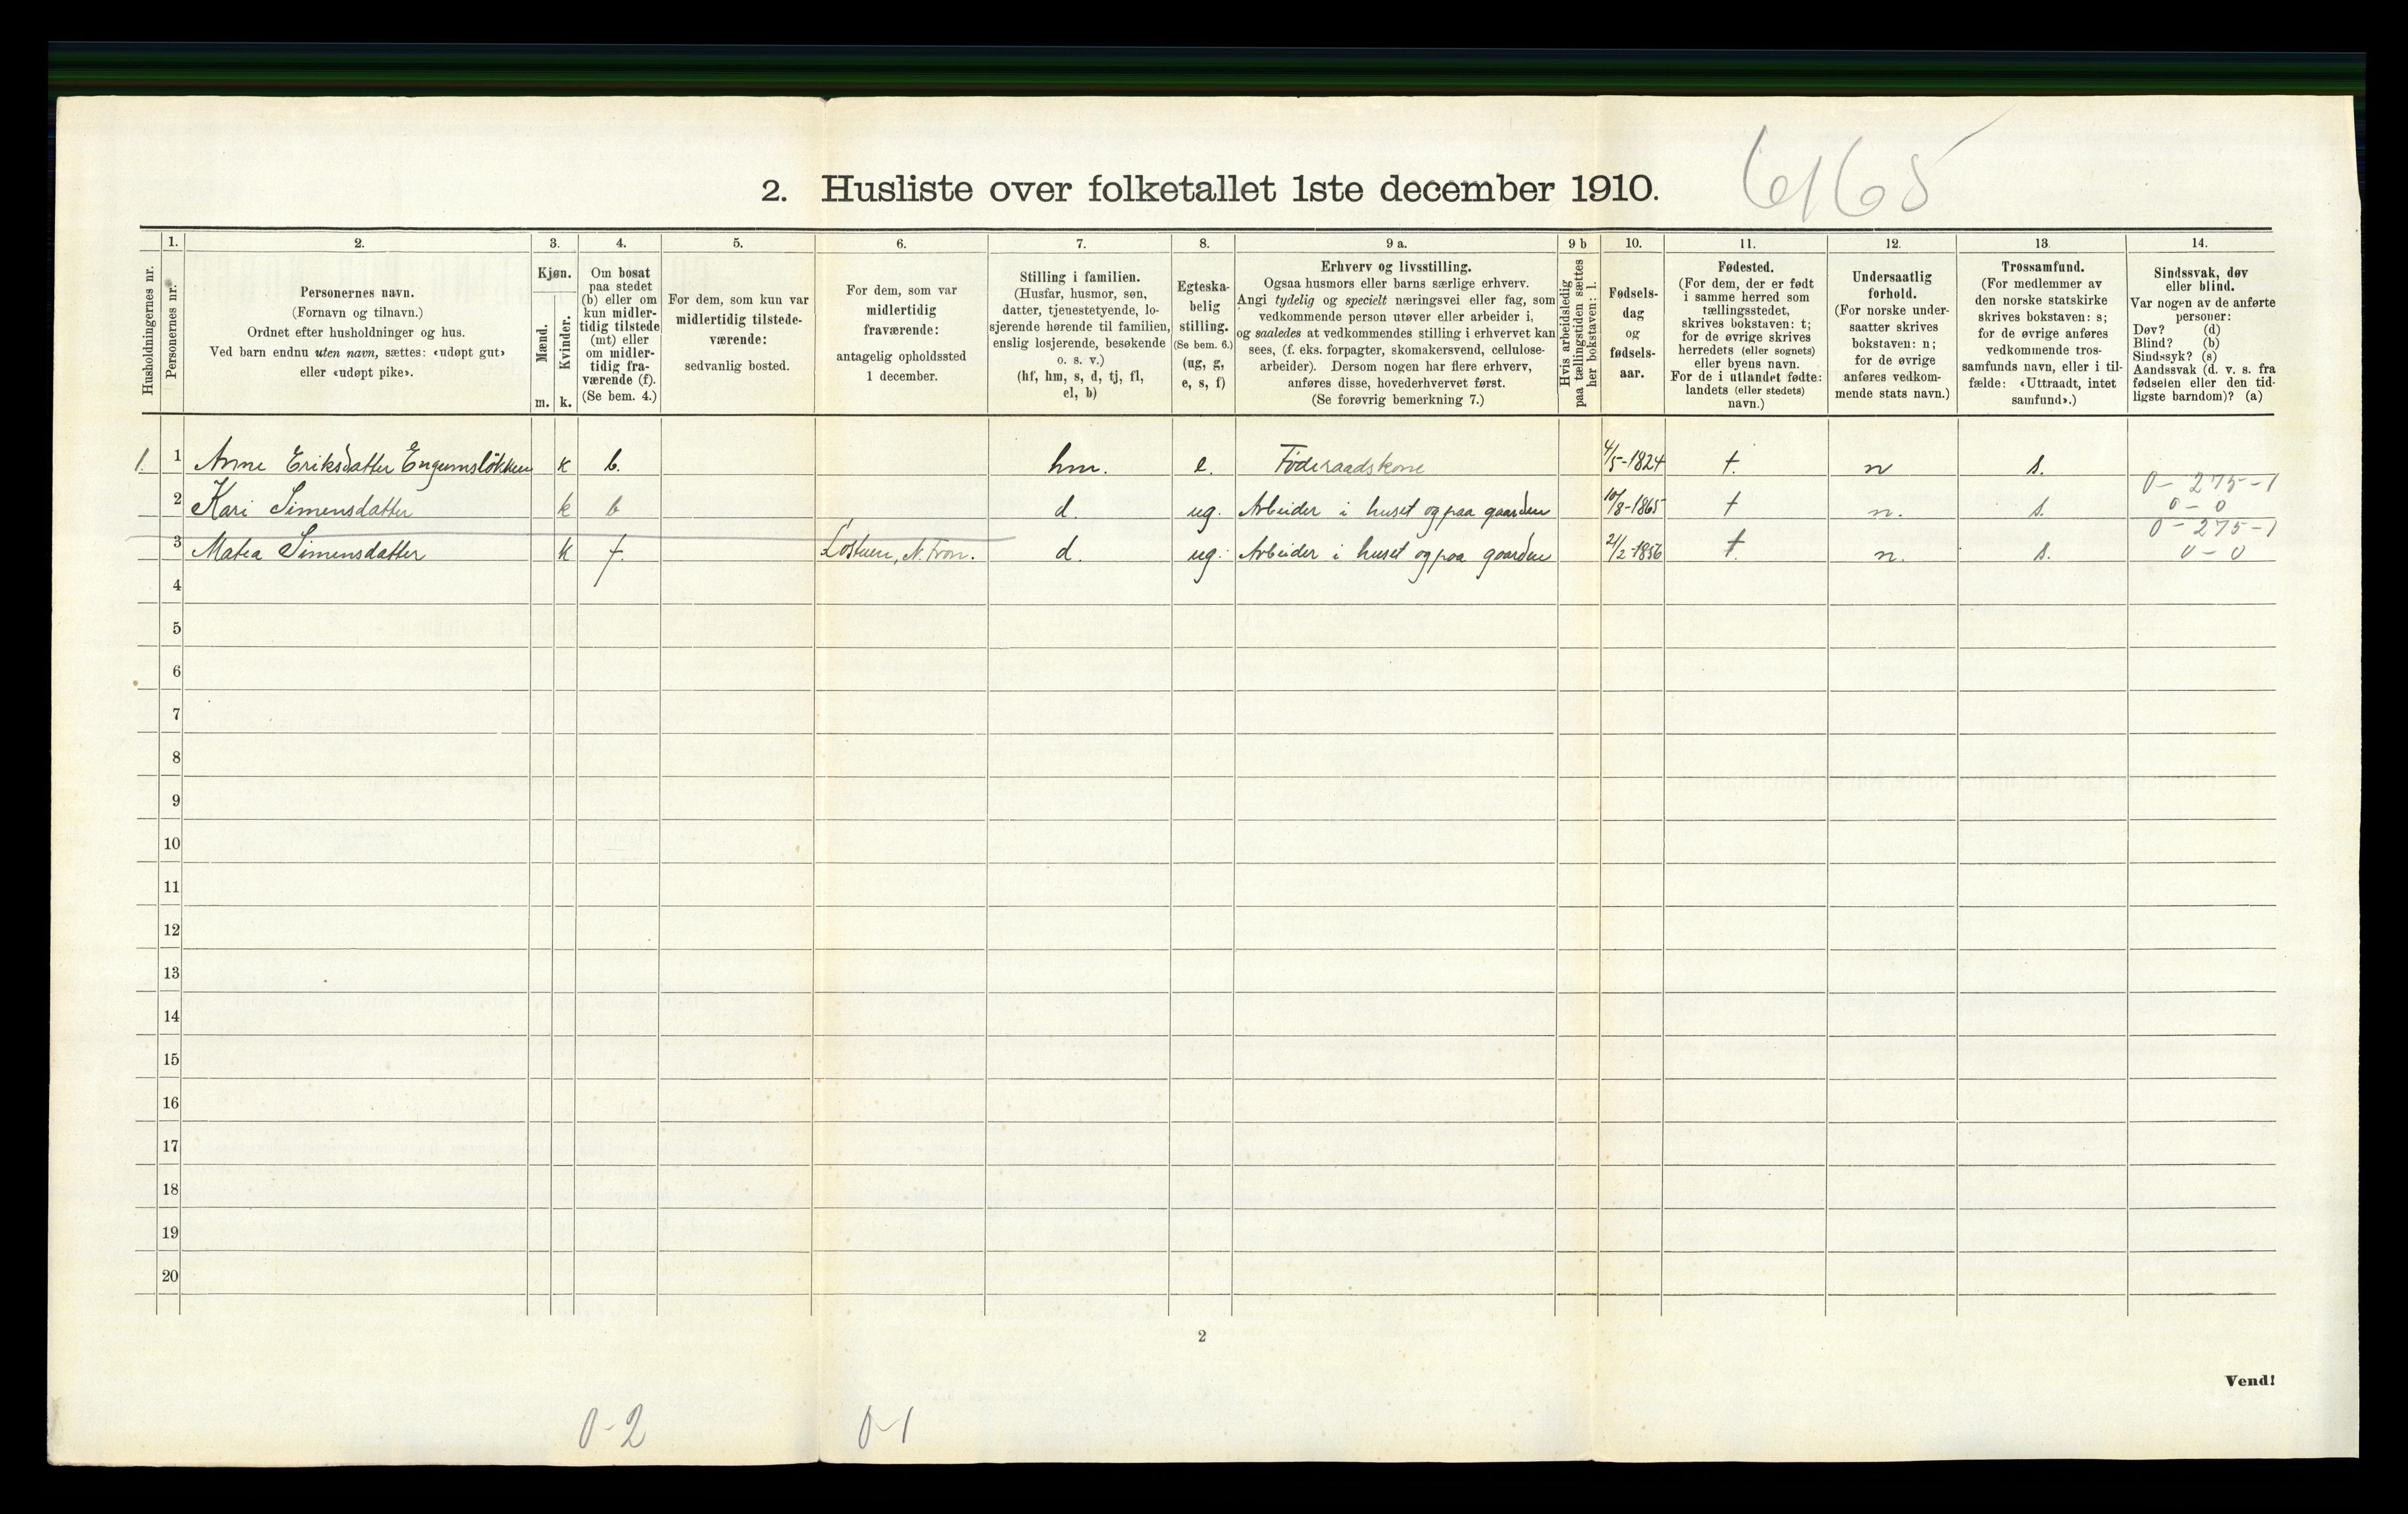 2. Husliste over folketallet 1ste december 1910.
6165
Husholdningernes nr.
1.
Personernes nr.
2.
Personernes navn.
(Fornavn og tilnavn.)
Ordnet efter husholdninger og hus.
Ved barn endnu uten navn, sættes: «udøpt gut»
eller «udøpt pike».
3.
Kjøn.
Mænd.
Kvinder.
m. k.
4.
Om bosat
paa stedet
(b) eller om
kun midler-
tidig tilstede
(mt) eller
om midler-
tidig fra-
værende (f).
(Se bem. 4.)
5.
For dem, som kun var
midlertidig tilstede-
værende:
sedvanlig bosted.
6.
For dem, som var
midlertidig
fraværende:
antagelig opholdssted
1 december.
7.
Stilling i familien.
(Husfar, husmor, søn,
datter, tjenestetyende, lo-
sjerende hørende til familien,
enslig losjerende, besøkende
o. s. v.)
(hf, hm, s, d, tj, fl,
el, b)
8.
Egteska-
belig
stilling.
(Se bem. 6.)
(ug, g,
e, s, f)
9 a.
Erhverv og livsstilling.
Ogsaa husmors eller barns særlige erhverv.
Angi tydelig og specielt næringsvei eller fag, som
vedkommende person utøver eller arbeider i,
og saaledes at vedkommendes stilling i erhvervet kan
sees, (f. eks. forpagter, skomakersvend, cellulose-
arbeider). Dersom nogen har flere erhverv,
anføres disse, hovederhvervet først.
(Se forøvrig bemerkning 7.)
9 b
Hvis arbeidsledig
paa tællingstiden sættes
her bokstaven: l.
10.
Fødsels-
dag
og
fødsels-
aar.
11.
Fødested.
(For dem, der er født
i samme herred som
tællingsstedet,
skrives bokstaven: t;
for de øvrige skrives
herredets (eller sognets)
eller byens navn.
For de i utlandet fødte:
landets (eller stedets)
navn.)
12.
Undersaatlig
forhold.
(For norske under-
saatter skrives
bokstaven: n;
for de øvrige
anføres vedkom-
mende stats navn.)
13.
Trossamfund.
(For medlemmer av
den norske statskirke
skrives bokstaven: s;
for de øvrige anføres
vedkommende tros-
samfunds navn, eller i til-
fælde: «Uttraadt, intet
samfund».)
14.
Sindssvak, døv
eller blind.
Var nogen av de anførte
personer:
Døv? (d)
Blind? (b)
Sindssyk? (s)
Aandssvak (d. v. s. fra
fødselen eller den tid-
ligste barndom)? (a)
1. 1 Anne Eriksdatter Engumsløkken k b. hm. e. Føderaadskone 4/5-1824 t. n s.
0-275-1
2 Kari Simensdatter k b d. ug. Arbeider i huset og paa gaarden 10/8-1865 t n. s. 0-0
0-275-1
3 Matea Simensdatter k f. N. Fron. d. ug. Arbeider i huset og paa gaarden 21/2-1856 t. n. s. 0-0
4
5
6
7
8
9
10
11
12
13
14
15
16
17
18
19
20
2
Vend!
0-2 0-1